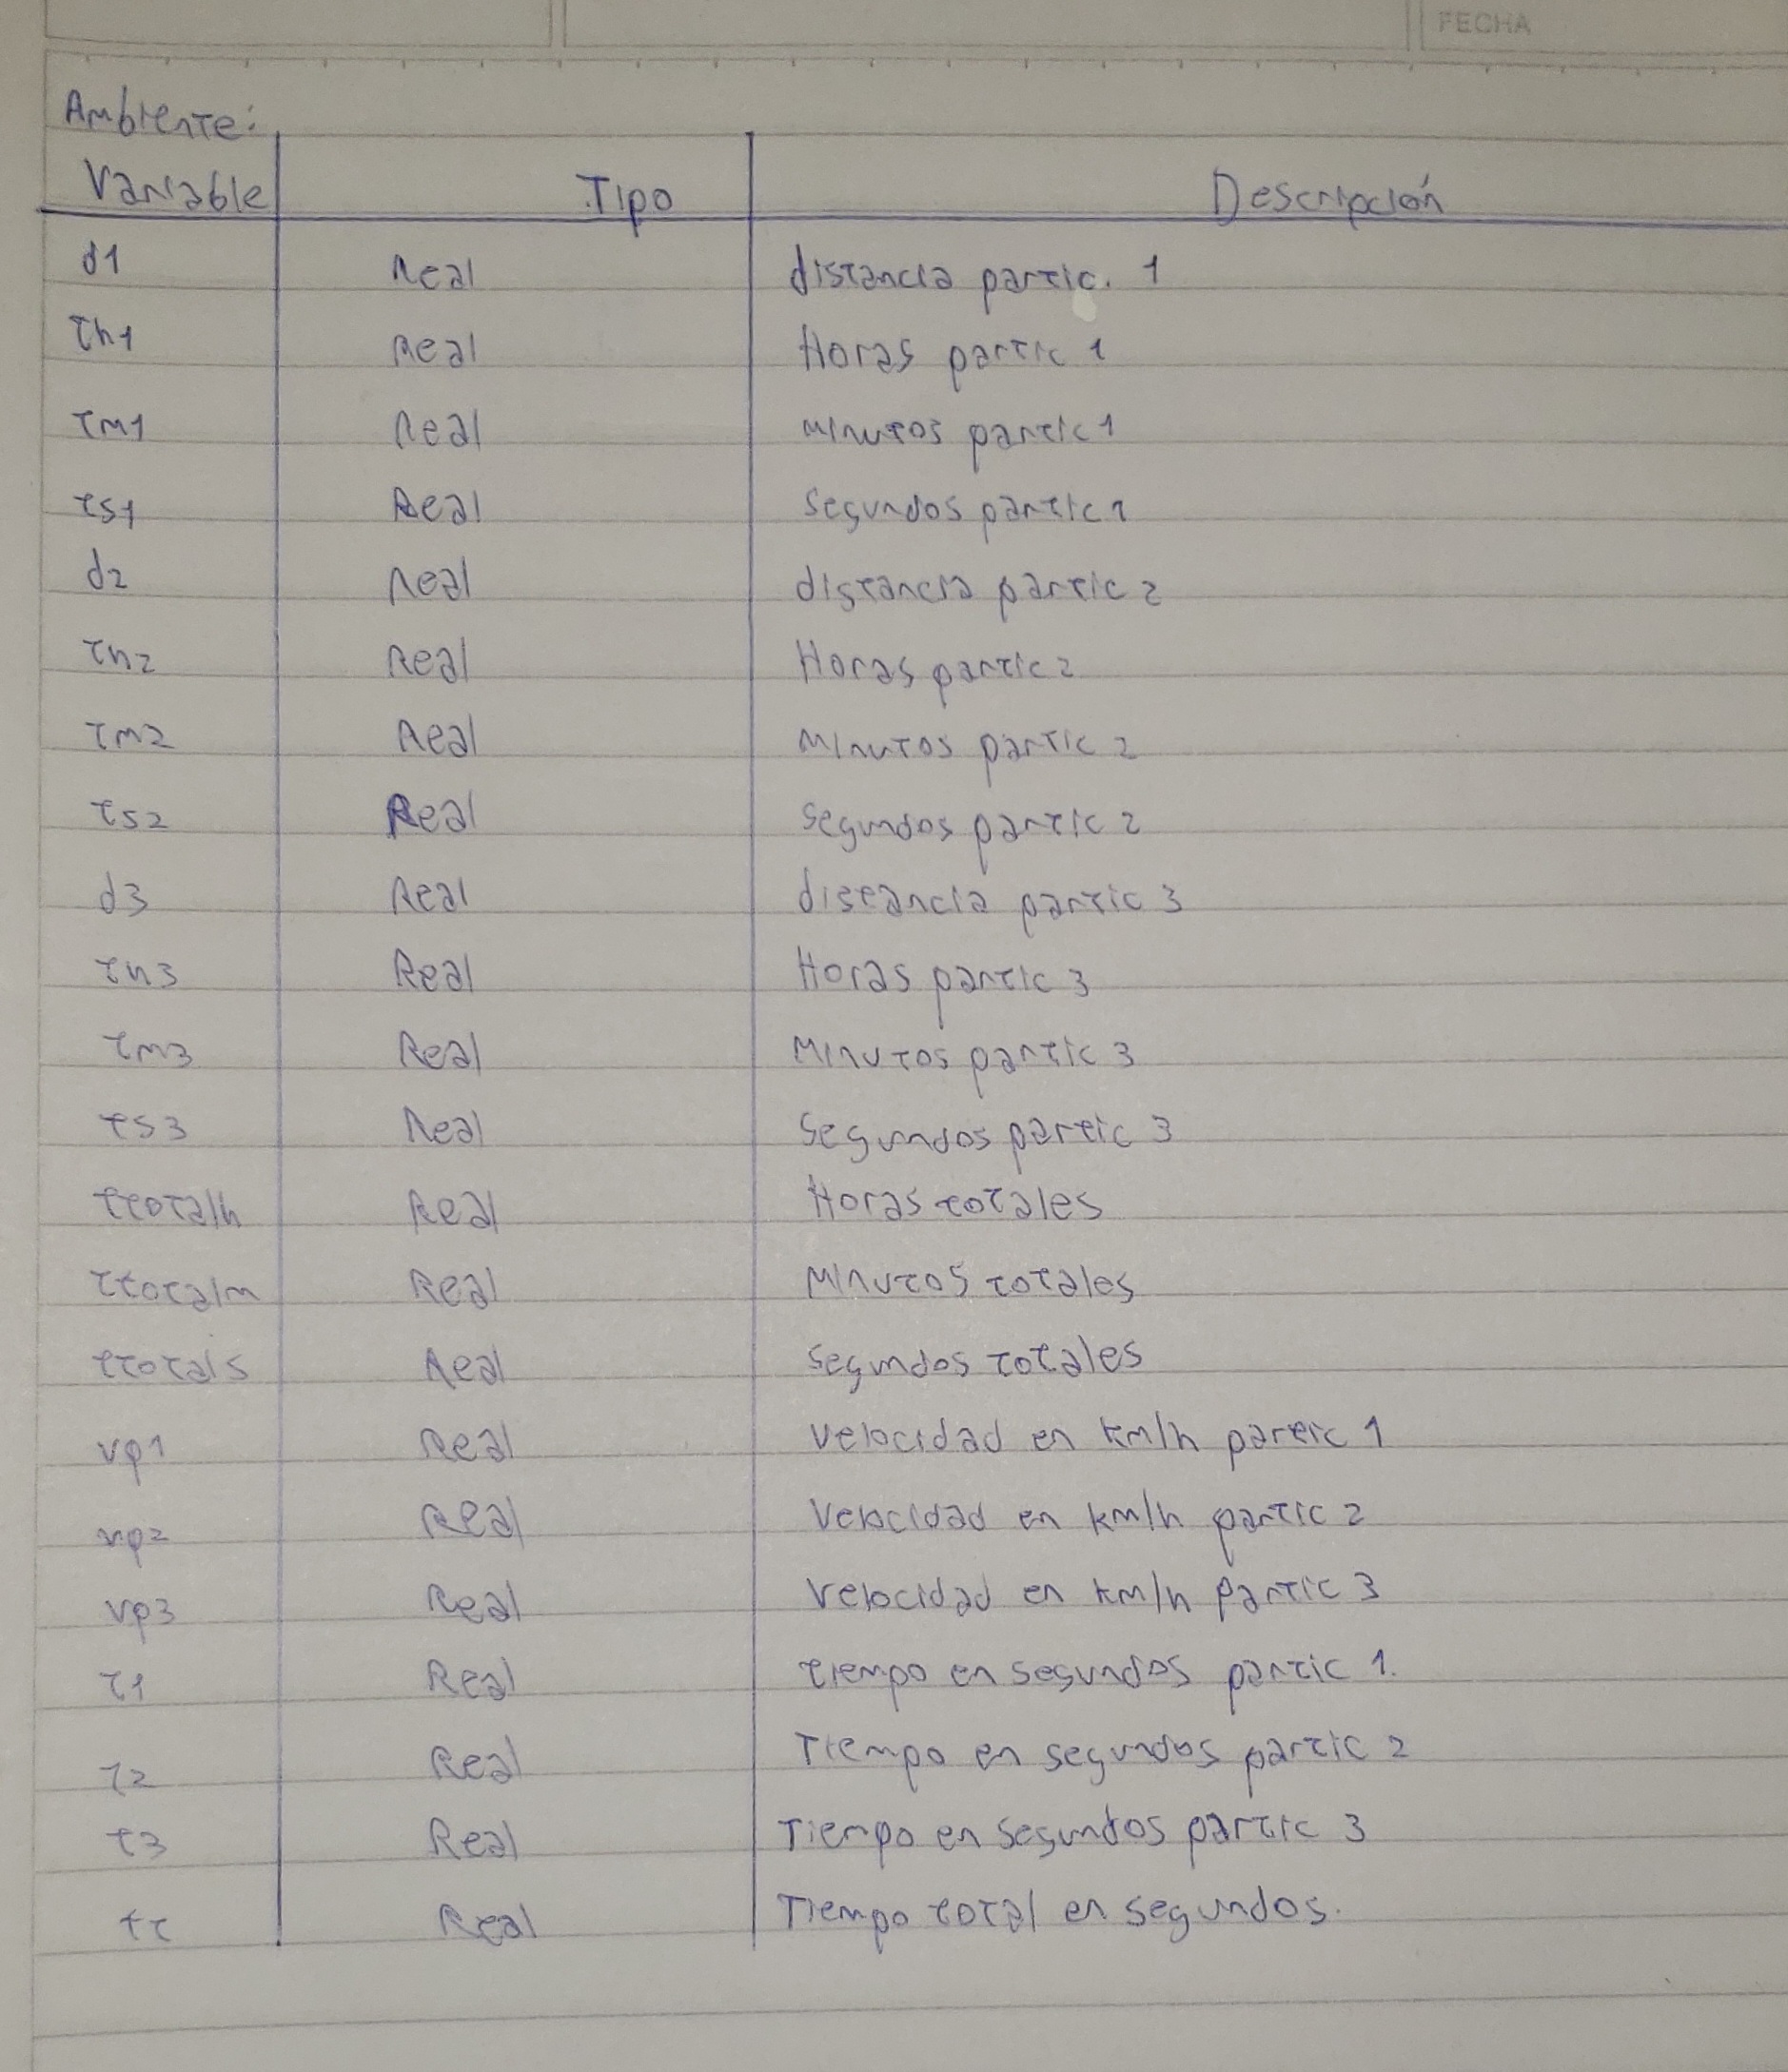 FECHA
Ambiente:
Variable Tipo Descripción
d1 Real distancia partic. 1
th1 Real Horas partic 1
tm1 Real minutos partic 1
ts1 Real Segundos partic 1
d2 Real distancia partic 2
th2 Real Horas partic 2
tm2 Real Minutos partic 2
ts2 Real Segundos partic 2
d3 Real distancia partic 3
th3 Real Horas partic 3
tm3 Real Minutos partic 3
ts3 Real Segundos partic 3
ttotalh Real Horas totales
ttotalm Real Minutos totales
ttotals Real Segundos totales
vp1 Real Velocidad en km/h partic 1
vp2 Real Velocidad en km/h partic 2
vp3 Real Velocidad en km/h Partic 3
t1 Real tiempo en segundos partic 1.
t2 Real Tiempo en segundos partic 2
t3 Real Tiempo en Segundos partic 3
tt Real Tiempo total en segundos.